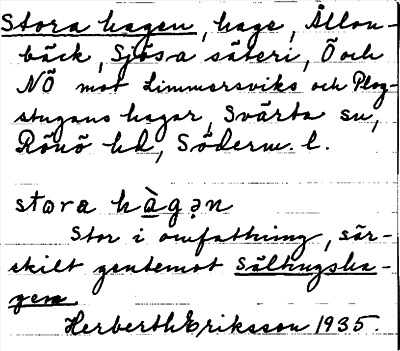 Stora hagen, hage, Ållon-
bäck, Sjösa säteri, Ö och
NÖ mot Limmersviks och Plog-
stugans hagar, Svärta sn,
Rönö hd, Söderm. l.
stora hàgən
Stor i omfattning, sär-
skilt gentemot Sältingsha-
gen
Herberth Eriksson 1935.